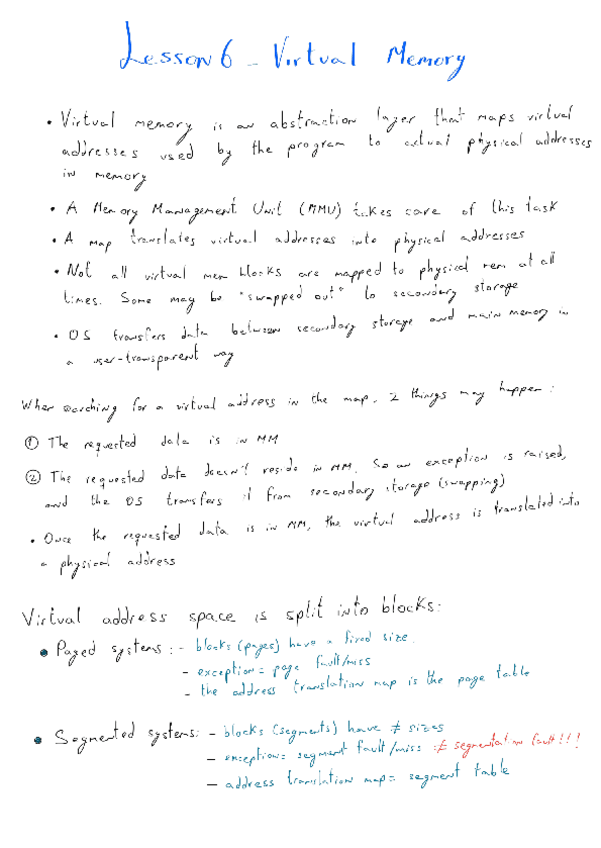 Lesson 6 - Virtual Memory
• Virtual memory is an abstraction layer that maps virtual
addresses used by the program to actual physical addresses
in memory
• A Memory Management Unit (MMU) takes care of this task
• A map translates virtual addresses into physical addresses
• Not all virtual mem blocks are mapped to physical mem at all
times. Some may be "swapped out" to secondary storage
• OS transfers data between secondary storage and main memory in
a user-transparent way
When searching for a virtual address in the map, 2 things may happen:
① The requested data is in MM
② The requested data doesn't reside in MM. So an exception is raised,
and the OS transfers it from secondary storage (swapping)
• Once the requested data is in MM, the virtual address is translated into
a physical address
Virtual address space is split into blocks:
• Paged systems: - blocks (pages) have a fixed size.
- exception = page fault/miss
- the address translation map is the page table
• Segmented systems: - blocks (segments) have ≠ sizes
- exception = segment fault/miss ≠ segmentation fault!!!
- address translation map = segment table